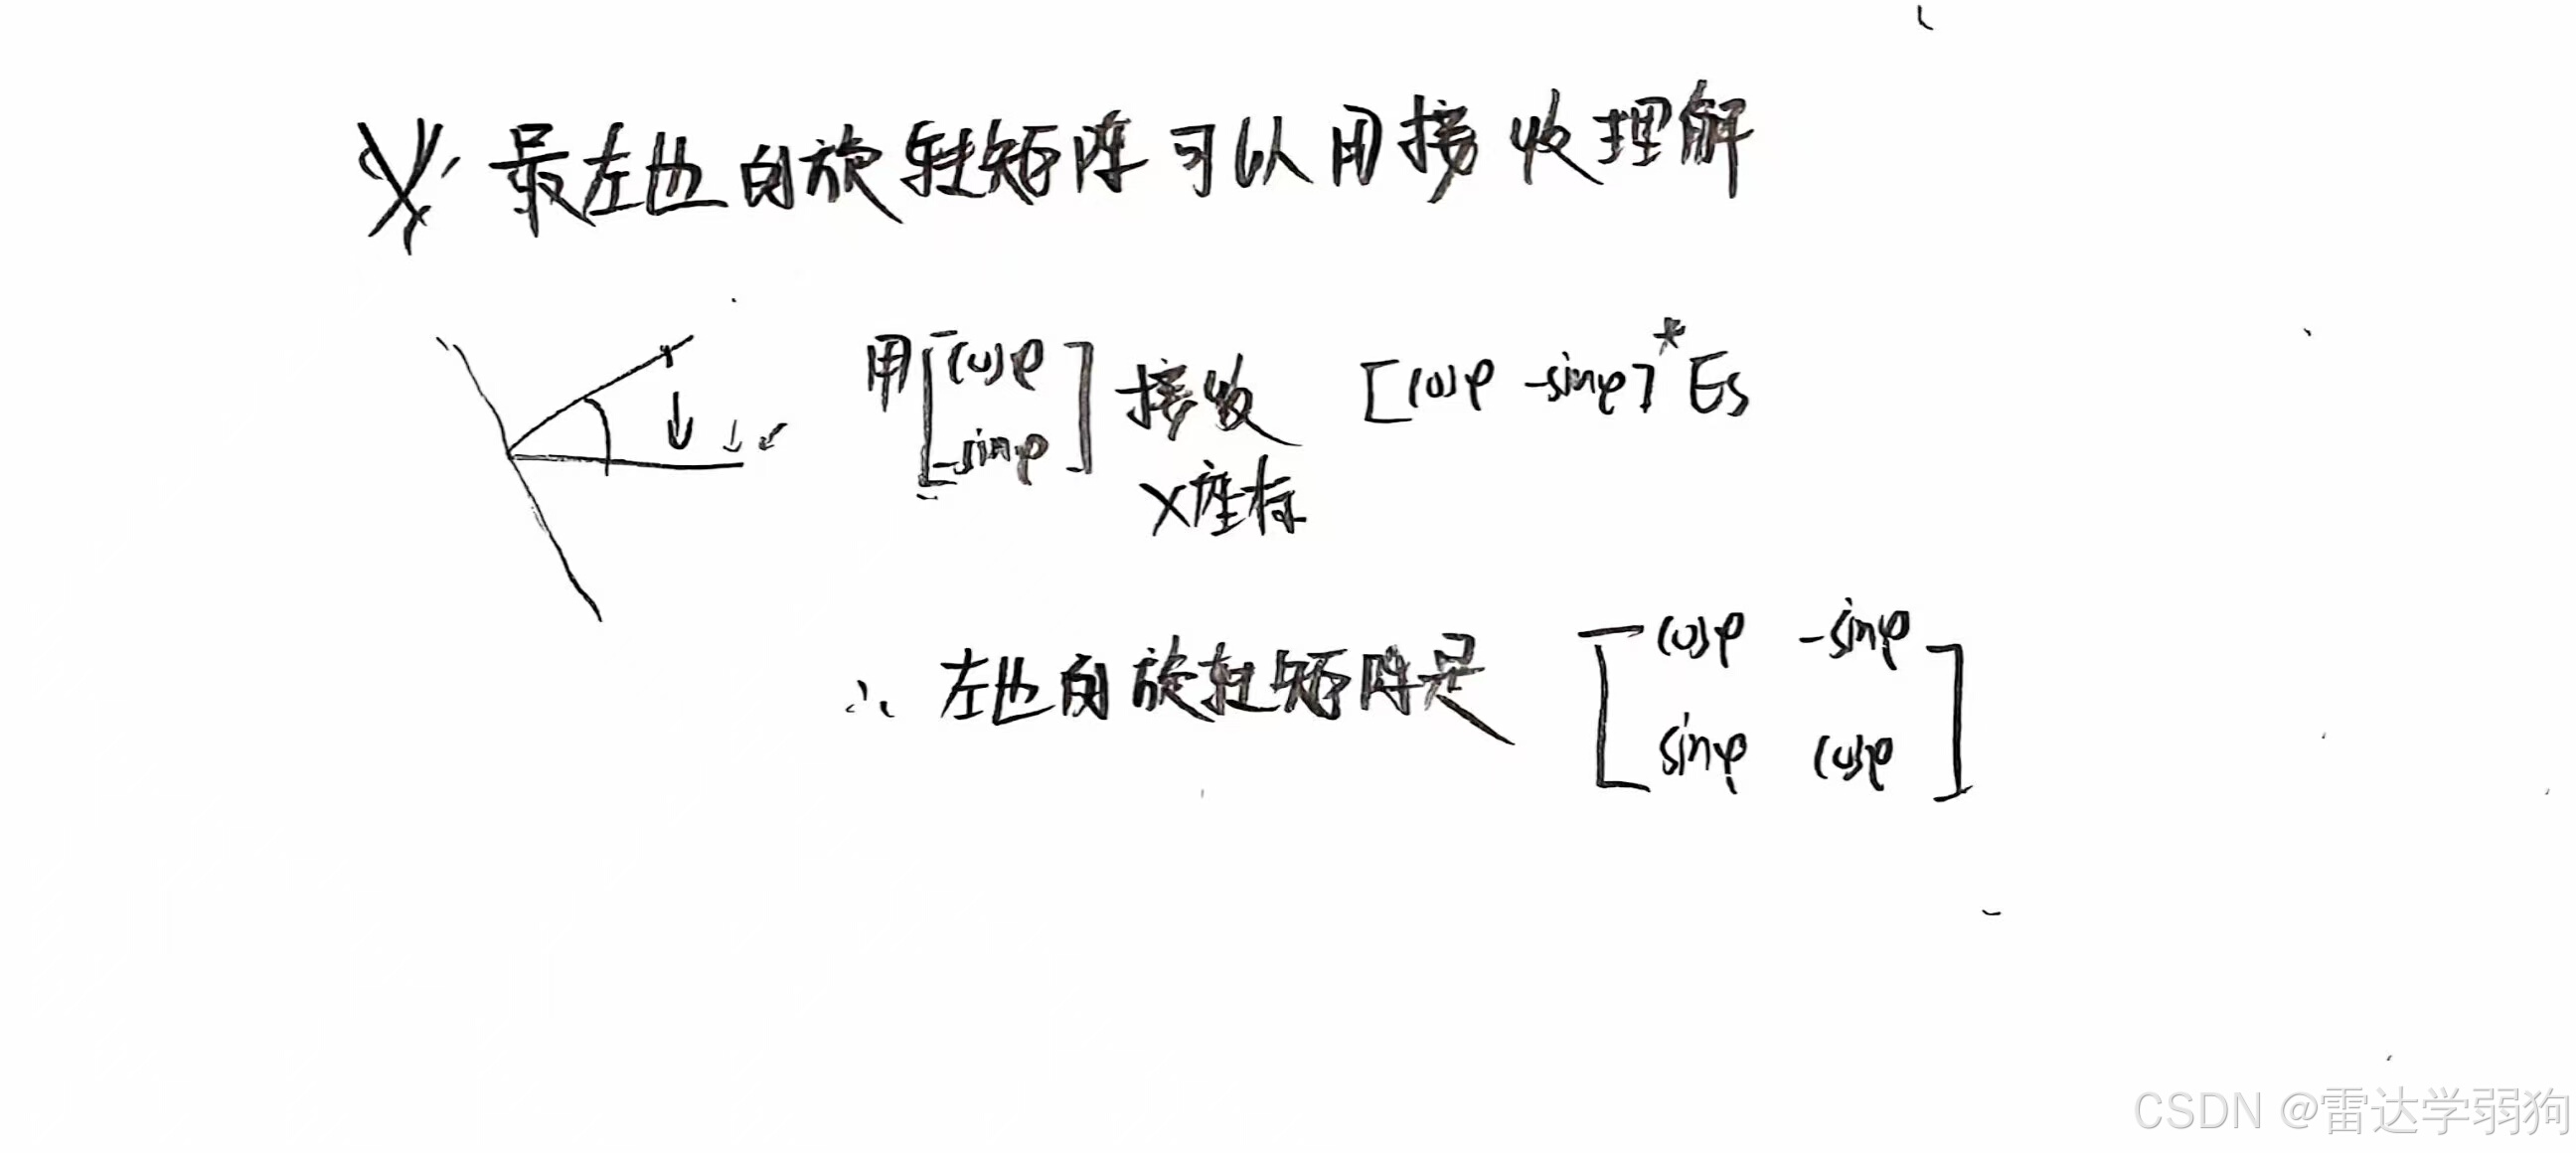 ※ 最左边的旋转矩阵可以用接收理解
用[cosφ -sinφ]接收 [cosφ -sinφ]* Es
X座标
∴ 左边的旋转矩阵是 [cosφ -sinφ
sinφ cosφ]
CSDN @雷达学弱狗